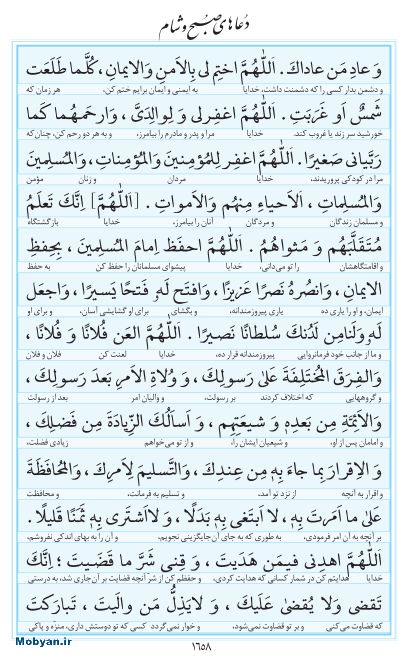 دعاهای صبح و شام
وَ عادِ مَن عاداكَ . اَللّٰهُمَّ اختِم لي بِالاَمنِ وَالايمانِ ، كُلَّما طَلَعَت
و دشمن بدار کسی را که دشمنت داشت، خدایا به ایمنی و ایمان برایم ختم کن، هر زمان که
شَمسٌ اَو غَرَبَت . اَللّٰهُمَّ اغفِرلي وَ لِوالِدَيَّ ، وَارحَمهُما كَما
خورشید سر زند یا غروب کند. خدایا مرا و پدر و مادرم را بیامرز، و به هر دو رحم کن، چنان‌که
رَبَّياني صَغيرًا . اَللّٰهُمَّ اغفِر لِلمُؤمِنينَ وَالمُؤمِناتِ ، وَالمُسلِمينَ
مرا در کودکی پروریدند، خدایا مردان و زنان مؤمن
وَالمُسلِماتِ ، اَلاَحياءِ مِنهُم وَالاَمواتِ . [اَللّٰهُمَّ] اِنَّكَ تَعلَمُ
و مسلمان زندگان و مردگان آنان را بیامرز. خدایا بازگشتگاه
مُتَقَلَّبَهُم وَ مَثواهُم . اَللّٰهُمَّ احفَظ اِمامَ المُسلِمينَ ، بِحِفظِ
و اقامتگاهشان را تو می‌دانی، خدایا پیشوای مسلمانان را حفظ کن به حفظ
الايمانِ ، وَانصُرهُ نَصرًا عَزيزًا ، وَافتَح لَهُ فَتحًا يَسيرًا ، وَاجعَل
ایمان، و او را یاری ده یاری پیروزمندانه، و بگشای برای او گشایشی آسان، و برای او
لَهُ وَلَنامِن لَدُنكَ سُلطانًا نَصيرًا . اَللّٰهُمَّ العَن فُلانًا وَ فُلانًا ،
و ما از جانب خود فرمانروایی پیروزمندانه قرار ده، خدایا لعنت کن فلان و فلان
وَالفِرَقَ المُختَلِفَةَ عَلىٰ رَسولِكَ ، وَ وُلاةِ الاَمرِ بَعدَ رَسولِكَ ،
و گروههایی که اختلاف کردند بر رسولت، و والیان امر بعد از رسولت
وَالاَئِمَّةِ مِن بَعدِهٖ وَ شيعَتِهِم ، وَ اَسأَلُكَ الزِّيادَةَ مِن فَضلِكَ ،
و امامان پس از او، و شیعیان ایشان را، و از تو می‌خواهم زیادی فضلت،
وَ الاِقرارَ بِما جاءَ بِهٖ مِن عِندِكَ ، وَالتَّسليمَ لِاَمرِكَ ، وَالمُحافَظَةَ
و اقرار به آنچه از نزد تو آمد، و تسلیم به فرمانت، و محافظت
عَلىٰ ما اَمَرتَ بِهٖ ، لا اَبتَغي بِهٖ بَدَلًا ، وَ لااَشتَري بِهٖ ثَمَنًا قَليلًا .
بر آنچه به آن امر فرمودی، به طوری که به جای آن جایگزینی نجویم، و آن را به بهای اندکی نفروشم،
اَللّٰهُمَّ اهدِني فيمَن هَدَيتَ ، وَ قِني شَرَّ ما قَضَيتَ ؛ اِنَّكَ
خدایا هدایتم کن در شمار کسانی که هدایت کردی، و حفظم کن از شر آنچه قضایت بر آن جاری شد، به درستی
تَقضي وَلا يُقضىٰ عَلَيكَ ، وَ لايَذِلُّ مَن والَيتَ ، تَبارَكتَ
که قضاوت می‌کنی و بر تو قضاوت نمی‌شود، و خوار نمی‌گردد کسی که تو دوستش داری، منزه و پاکی
١٦٥٨
Mobyan.ir